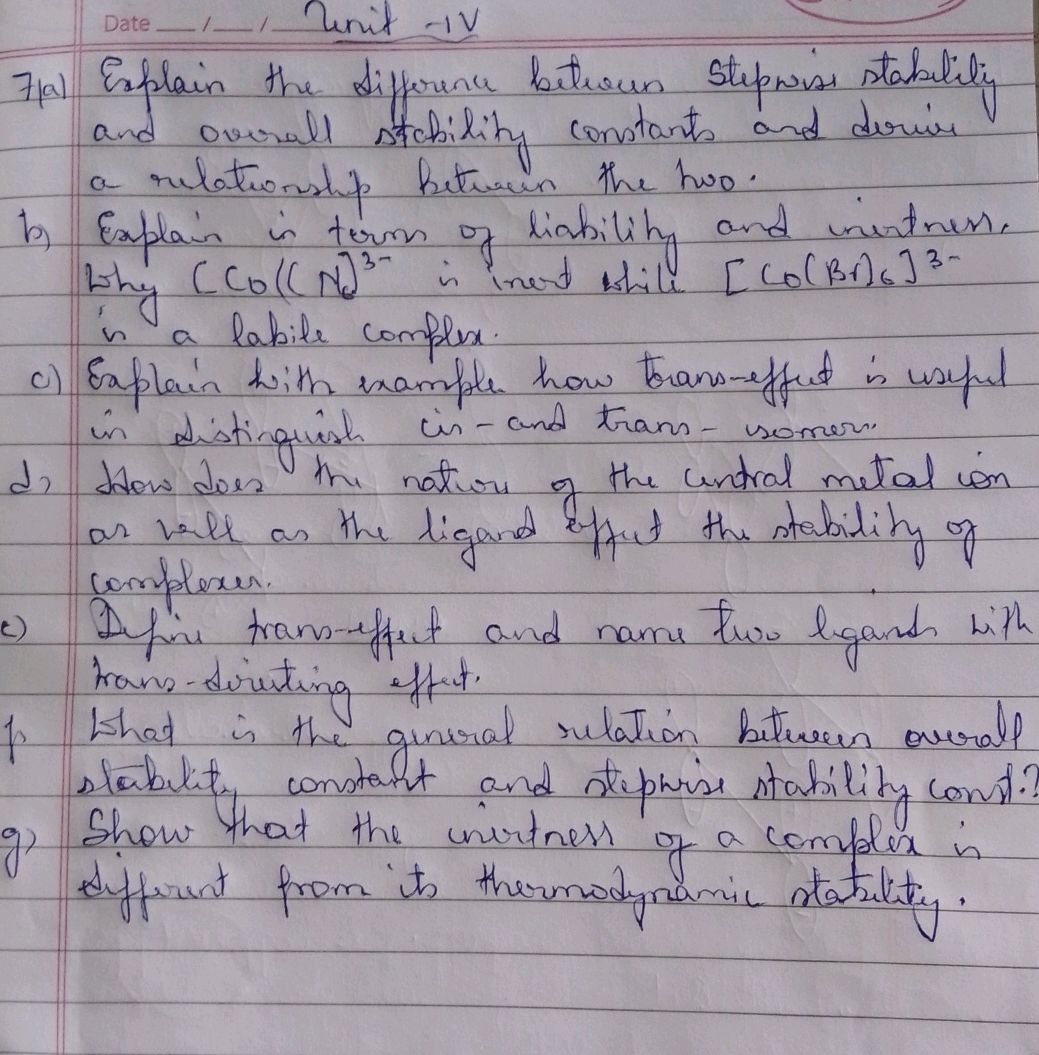 Date __/__/__ Unit - IV
7(a) Explain the difference between stepwise stability
and overall stability constants and derive
a relationship between the two.
b) Explain in terms of liability and inertness.
Why [Co(CN)6]3- is inert while [Co(Br)6]3-
is a labile complex.
c) Explain with example how trans-effect is useful
in distinguish cis- and trans- isomers.
d) How does the nature of the central metal ion
as well as the ligand effect the stability of
complexes.
e) Define trans-effect and name two ligands with
trans-directing effect.
f. What is the general relation between overall
stability constant and stepwise stability const.?
g) Show that the inertness of a complex is
different from its thermodynamic stability.